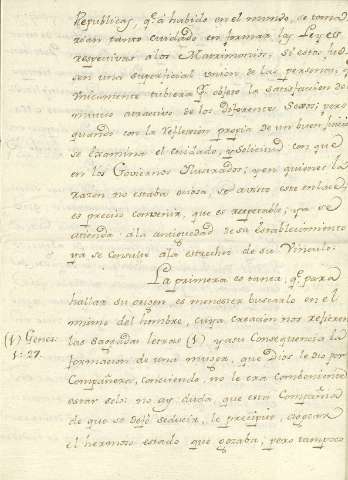 Republicas, q.e á habido en el mundo, se toma
rian tanto cuidado en formar las Leyes
respectivas a los Matrimonios; Si estas fue
sen una superficial union de las personas, q.e
unicamente tubiera p.r objeto la satisfaccion del
mutuo atractivo de los diferentes Sexos; pero
quando con la reflexion propia de un buen juicio
se examina el cuidado, y solicitud con que
en los Goviernos ilustrados; y en quienes la
razon no estaba ociosa, se avisto este enlace,
es preciso convenir, que es respetable; ya se
atienda á la antiguedad de su establecimiento
ya se consulte a la estrechez de su Vinculo.
La primera es tanta, q.e para
hallar su origen, es menester buscarlo en el
mismo del hombre, cuya creacion nos refieren
(1) Genes.
1: 27.
las Sagradas letras (1) y a su consequencia la
formacion de una muger, que Dios le dio por
Compañera, conociendo, no le era combeniente
estar solo: no ay duda, que esta Compañia
de que se dejó seducir, le precipitó,
el hermoso estado que gozaba; pero tampoco